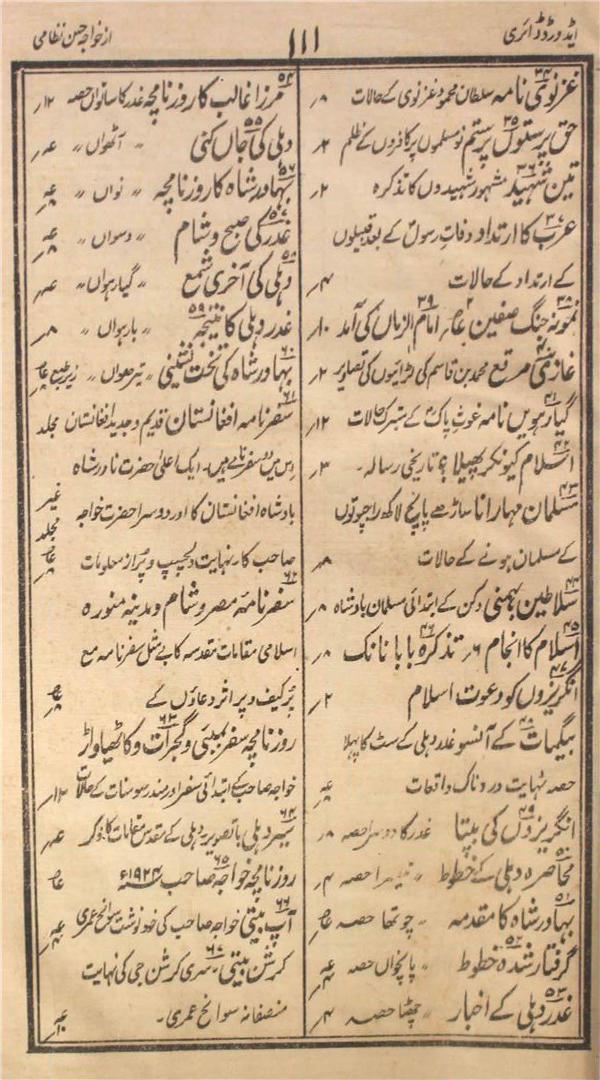 ایڈورڈ ڈائری
۱۱۱
از خواجہ حسن نظامی
۳۴ غزنوی نامہ سلطان محمود غزنوی کے حالات ۸ر
۳۵ حق پرستوں پر ستم نو مسلموں پر کافروں کے ظلم ۲ر
۳۶ تین شہید مشہور شہیدوں کا تذکرہ ۲ر
۳۷ عرب کا ارتداد وفات رسولؐ کے بعد قبیلوں
کے ارتداد کے حالات ۴ر
۳۸ نمونہ جنگ صفین ۲ر ۳۹ امام الزماں کی آمد ۱۰ر
۴۰ غازی مرقع محمد بن قاسم کی لڑائیوں کی تصاویر ۲ر
۴۱ گیارہویں نامہ غوث پاکؓ کے متبرک حالات ۱۲ر
۴۲ اسلام کیونکر پھیلا؟ تاریخی رسالہ۔ ۳ر
۴۳ مسلمان مہارانا ساڑھے پانچ لاکھ راجپوتوں
کے مسلمان ہونے کے حالات ۸ر
۴۴ سلاطین بہمنی دکن کے ابتدائی مسلمان بادشاہ ۸ر
۴۵ اسلام کا انجام ۶ر ۴۶ تذکرہ بابا نانک ۸ر
۴۷ انگریزوں کو دعوت اسلام ۲ر
۴۸ بیگمات کے آنسو غدر دہلی کے سٹ کا پہلا
حصہ نہایت دردناک واقعات
۴۹ انگریزوں کی بپتا غدر کا دوسرا حصہ ۸ر
۵۰ محاصرہ دہلی کے خطوط 〃 تیسرا حصہ ۴ر
۵۱ بہادر شاہ کا مقدمہ 〃 چوتھا حصہ
۵۲ گرفتار شدہ خطوط 〃 پانچواں حصہ
۵۳ غدر دہلی کے اخبار 〃 چھٹا حصہ ۴ر
۵۴ مرزا غالب کا روزنامچہ غدر کا ساتواں حصہ ۱۲ر
۵۵ دہلی کی جاں کنی 〃 آٹھواں 〃
۵۶ بہادر شاہ کا روزنامچہ 〃 نواں 〃
۵۷ غدر کی صبح و شام 〃 دسواں 〃
۵۸ دہلی کی آخری شمع 〃 گیارہواں 〃
۵۹ غدر دہلی کا نتیجہ 〃 بارہواں 〃 ۸ر
۶۰ بہادر شاہ کی تخت نشینی 〃 تیرھواں 〃 زیر طبع
۶۱ سفرنامہ افغانستان قدیم و جدید افغانستان مجلد
اس میں دو سفرنامے ہیں۔ ایک اعلیٰ حضرت نادر شاہ
بادشاہ افغانستان کا اور دوسرا حضرت خواجہ غیر مجلد
صاحب کا نہایت دلچسپ و پُر از معلومات
۶۲ سفرنامہ مصر و شام و مدینہ منورہ
اسلامی مقامات مقدسہ کا بے مثل سفرنامہ مع
پُر کیف و پر اثر دعاؤں کے
۶۳ روزنامچہ سفر بمبئی و گجرات و کاٹھیاواڑ
خواجہ صاحب کے ابتدائی سفر اور مندر سومنات کے حالات ۱۲ر
۶۴ سیر دہلی باتصویر دہلی کے مقدس مقامات کا ذکر
۶۵ روزنامچہ خواجہ صاحب ۱۹۲۴ء
۶۶ آپ بیتی خواجہ صاحب کی خود نوشت سوانح عمری
۶۷ کرشن بیتی۔ سری کرشن جی کی نہایت
منصفانہ سوانح عمری۔